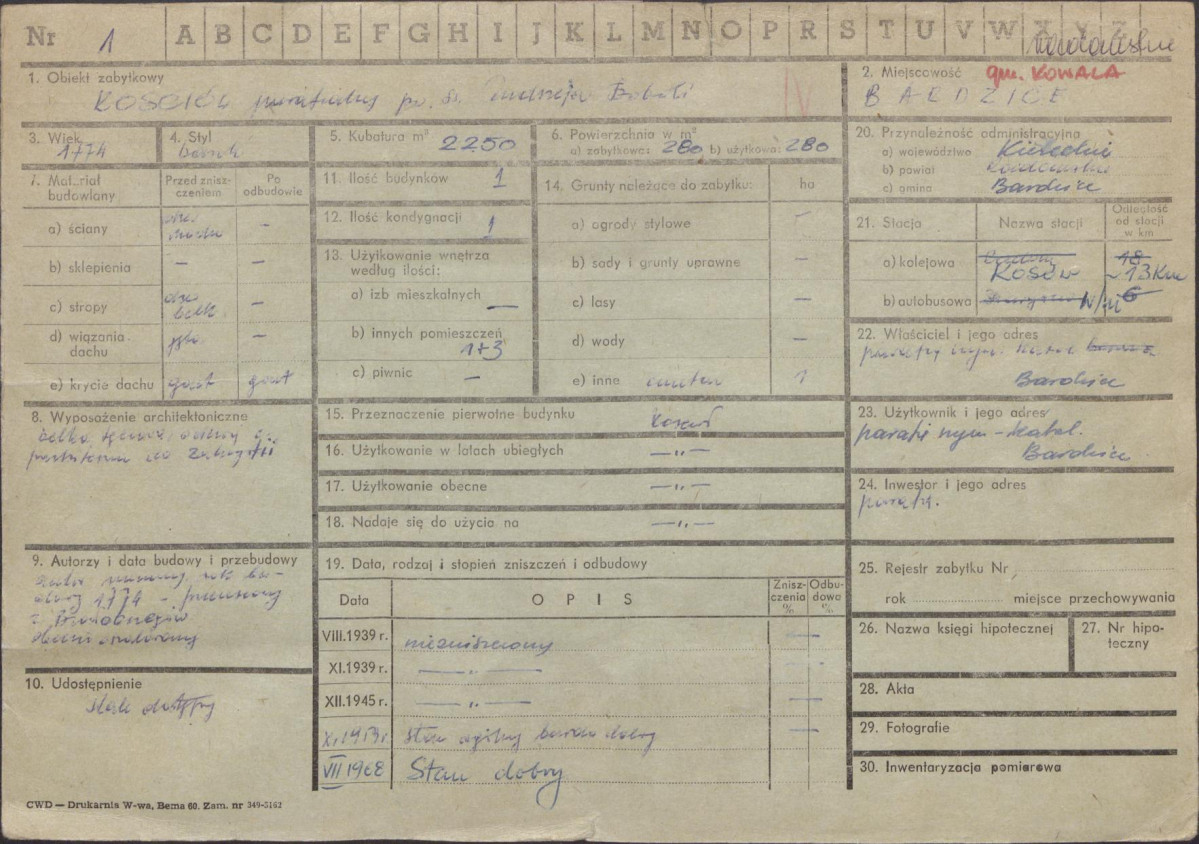 Nr 1 A B C D E F G H I J K L M N O P R S T U V W X Y Z
1. Obiekt zabytkowy
KOŚCIÓŁ parafialny pw. św. Andrzeja Boboli
IV
2. Miejscowość gm. KOWALA
BARDZICE
3. Wiek
1774
4. Styl
Barok
5. Kubatura m³ 2250
6. Powierzchnia w m²
a) zabytkowa: 280 b) użytkowa: 280
20. Przynależność administracyjna
a) województwo Kieleckie
b) powiat
c) gmina Bardzice
7. Materiał budowlany
Przed zniszczeniem
Po odbudowie
a) ściany –
b) sklepienia – –
c) stropy –
d) wiązania dachu –
e) krycie dachu gont gont
11. Ilość budynków 1
12. Ilość kondygnacji 1
13. Użytkowanie wnętrza według ilości:
a) izb mieszkalnych –
b) innych pomieszczeń
1+3
c) piwnic –
14. Grunty należące do zabytku: ha
a) ogrody stylowe –
b) sady i grunty uprawne –
c) lasy –
d) wody –
e) inne cmentarz 1
21. Stacja Nazwa stacji Odległość od stacji w km
a) kolejowa 18
KOSÓW ~13 Km
b) autobusowa N/M 6
22. Właściciel i jego adres
parafia rzym. katol.
Bardzice
8. Wyposażenie architektoniczne
15. Przeznaczenie pierwotne budynku kościół
16. Użytkowanie w latach ubiegłych –"–
17. Użytkowanie obecne –"–
18. Nadaje się do użycia na –"–
23. Użytkownik i jego adres
parafia rzym-katol.
Bardzice
24. Inwestor i jego adres
parafia.
9. Autorzy i data budowy i przebudowy
1774 – przeniesiony
10. Udostępnienie
stale dostępny
19. Data, rodzaj i stopień zniszczeń i odbudowy
Data OPIS Zniszczenia % Odbudowa %
VIII.1939 r. niezniszczony –
XI.1939 r. –"– –
XII.1945 r. –"– –
XI.1959r. stan ogólny bardzo dobry –
VII 1968 Stan dobry
25. Rejestr zabytku Nr
rok miejsce przechowywania
26. Nazwa księgi hipotecznej
27. Nr hipoteczny
28. Akta
29. Fotografie
30. Inwentaryzacja pomiarowa
CWD — Drukarnia W-wa, Bema 60. Zam. nr 349-5162